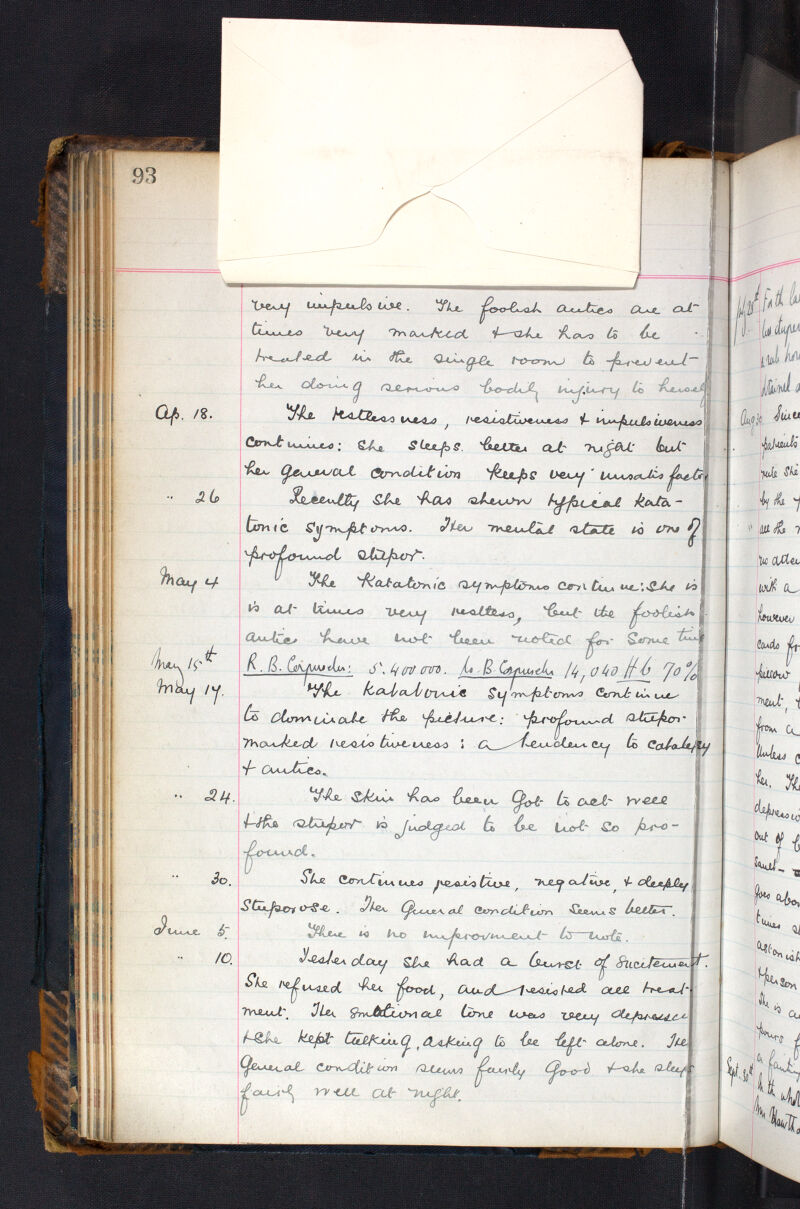 93
very impulsive. The foolish antics are at
times very marked & she has to be
treated in the single room to prevent
her doing serious bodily injury to herself
Ap. 18. The restlessness, resistiveness & impulsiveness
continues: she sleeps better at night but
her general condition keeps very unsatisfacto
" 26 Recently she has shewn typical kata-
tonic symptoms. Her mental state is one of
profound stupor.
May 4 The Katatonic symptoms continue: She is
is at times very restless, but the foolish
antics have not been noted for some time
May 15th R. B. Corpuscles: 5.400 000. W. B. Corpuscles 14,040 Hb 70%
May 17. The Katatonic symptoms continue
to dominate the picture: profound stupor
marked resistiveness: a tendency to catalepsy
& antics.
" 24. The skin has been got to act well
& the stupor is judged to be not so pro-
found.
" 30. She continues resistive, negative, & deeply
stuporose. Her general condition seems better.
June 5. There is no improvment to note.
" 10. Yesterday she had a burst of excitement.
She refused her food, and resisted all treat-
ment. Her emotional tone was very depressed
& she kept talking, asking to be left alone. The
general condition seems fairly good & she sleeps
fairly well at night.
July 28th For the la
Aug 30 Since
patients
rule she
by the
all the
no atten
with a
however
cards fr
pillow
ment,
from a
unless
her. The
depressi
out of
goes abou
times
astonish
& person
She is a
pours
a fainting
Sept. 30th